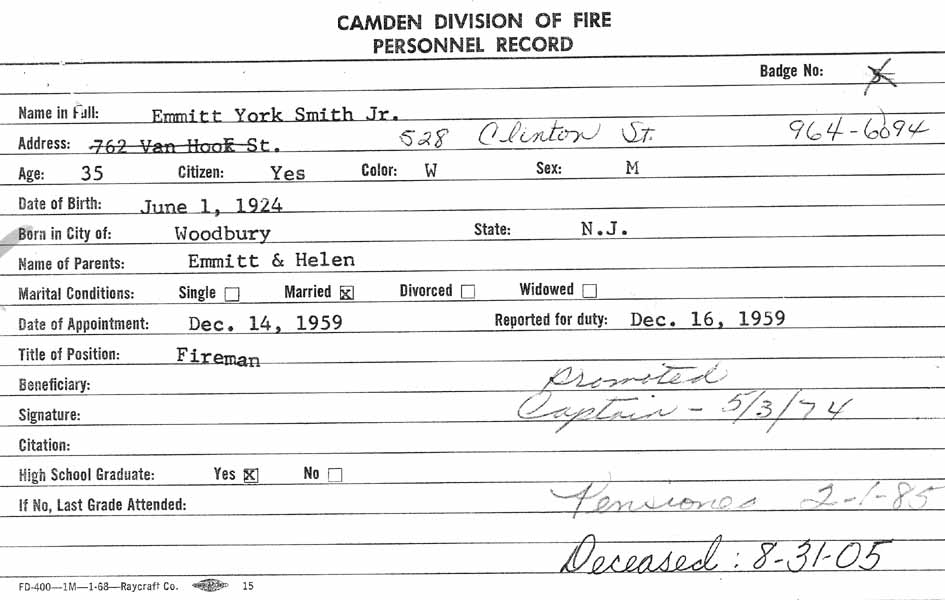 CAMDEN DIVISION OF FIRE
PERSONNEL RECORD
Badge No:
Name in Full: Emmitt York Smith Jr.
Address: 762 Van Hook St. 528 Clinton St. 964-6094
Age: 35 Citizen: Yes Color: W Sex: M
Date of Birth: June 1, 1924
Born in City of: Woodbury State: N.J.
Name of Parents: Emmitt & Helen
Marital Conditions: Single Married x Divorced Widowed
Date of Appointment: Dec. 14, 1959 Reported for duty: Dec. 16, 1959
Title of Position: Fireman
Beneficiary: Promoted
Signature: Captain - 5/3/74
Citation:
High School Graduate: Yes X No
If No, Last Grade Attended: Pensioned 2-1-85
Deceased: 8-31-05
FD-400—1M—1-68—Raycraft Co. 15